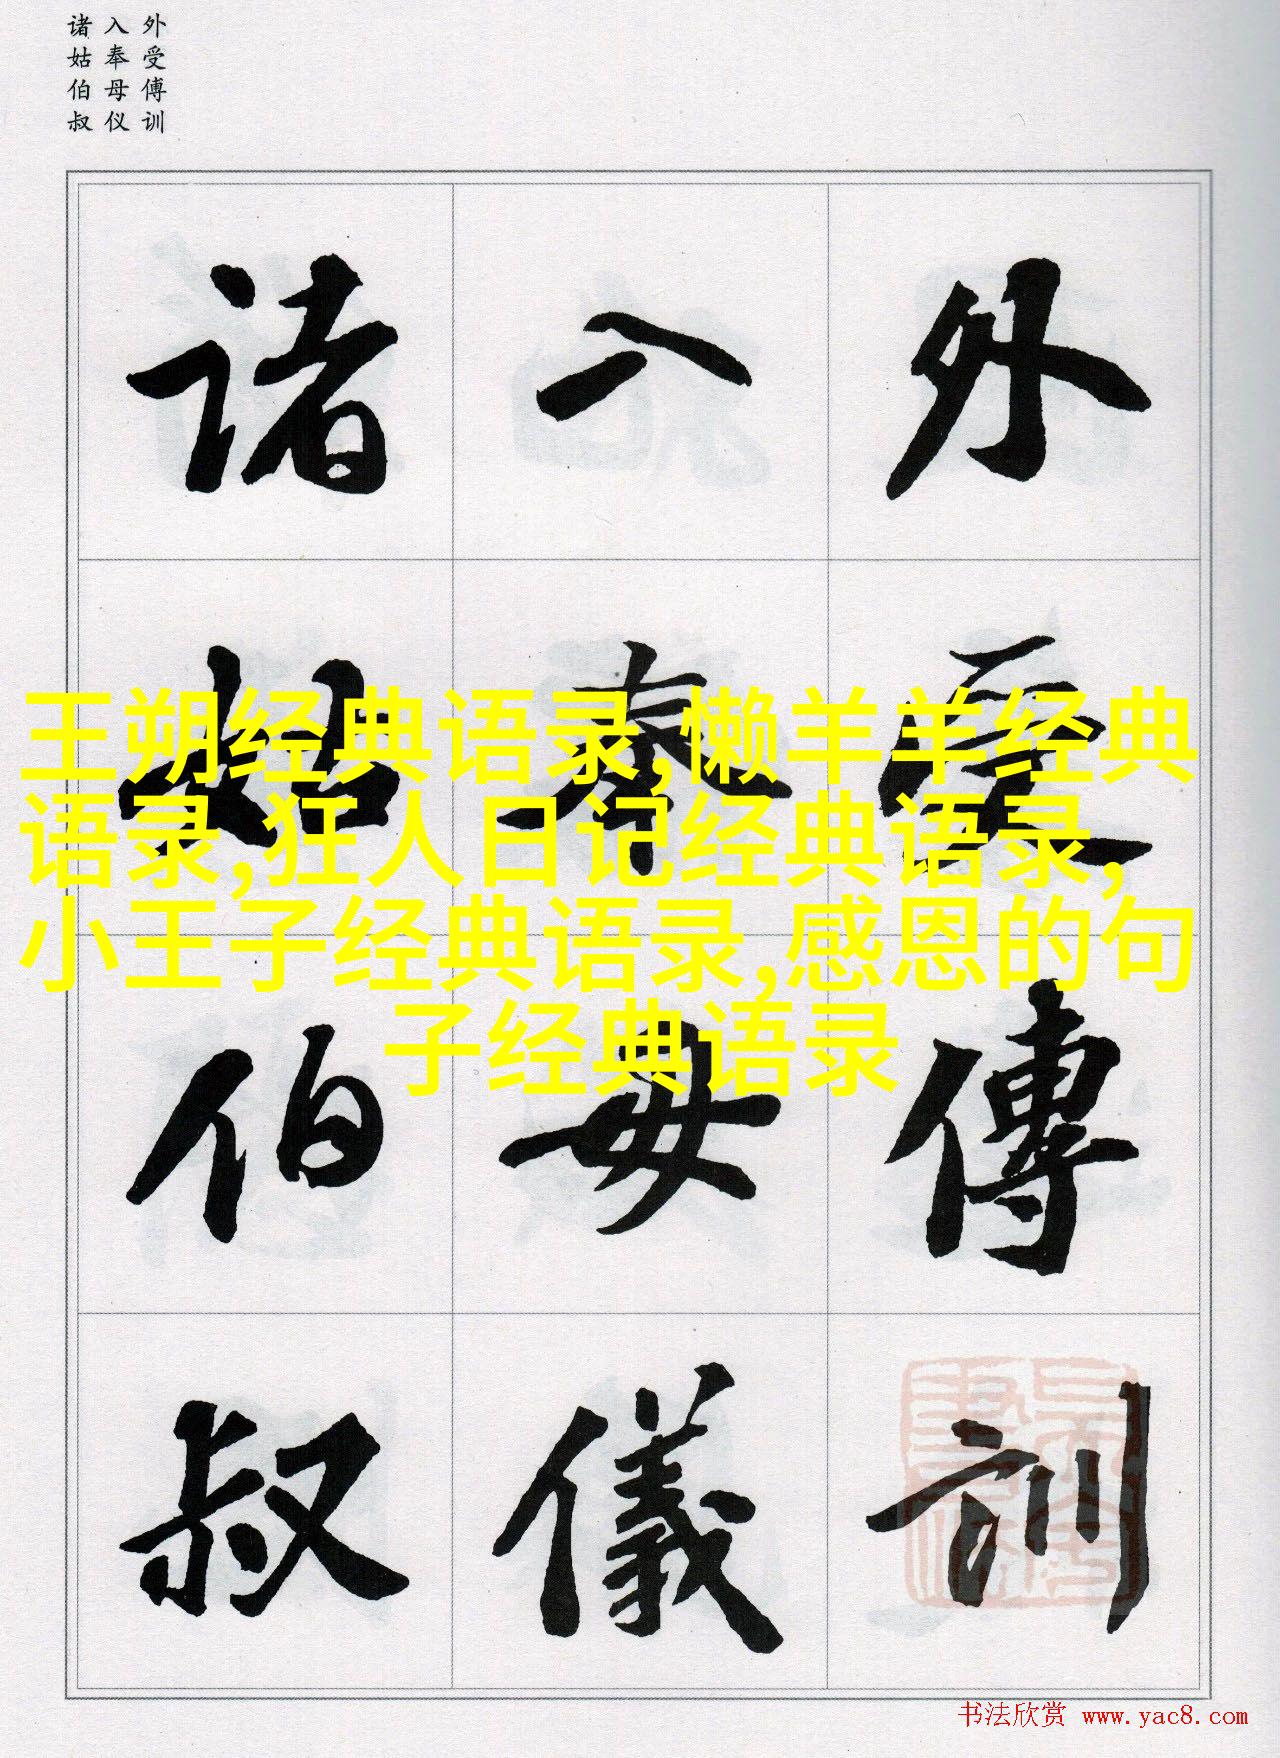 外受傅训
入奉母仪
诸姑伯叔
外受傳訓
入奉母儀
诸姑伯叔
王朔经典语录,懒羊羊经典
语录,狂人日记经典语录,
小王子经典语录,感恩的句
子经典语录
书法欣赏 www.yac8.com